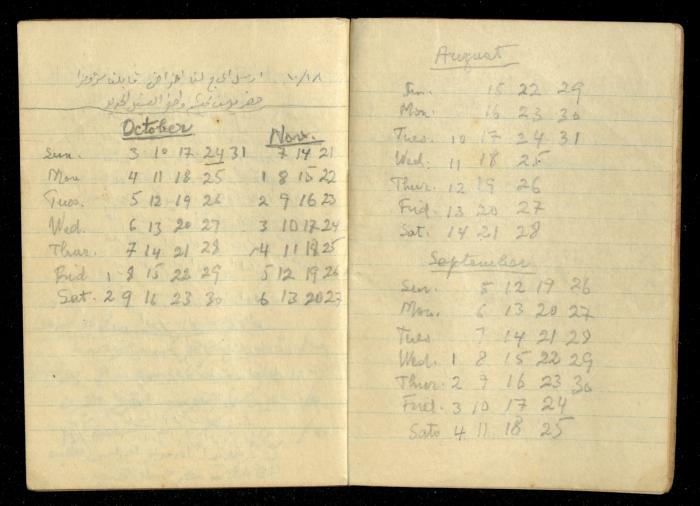 ١٠/١٨
October
Nov.
Sun. 3 10 17 24 31 7 14 21
Mon 4 11 18 25 1 8 15 22
Tues. 5 12 19 26 2 9 16 23
Wed. 6 13 20 27 3 10 17 24
Thur. 7 14 21 28 4 11 18 25
Frid 1 8 15 22 29 5 12 19 26
Sat. 2 9 16 23 30 6 13 20 27
August
Sun. 15 22 29
Mon. 16 23 30
Tues. 10 17 24 31
Wed. 11 18 25
Thur. 12 19 26
Frid. 13 20 27
Sat. 14 21 28
September
Sun. 5 12 19 26
Mon. 6 13 20 27
Tues 7 14 21 28
Wed. 1 8 15 22 29
Thur. 2 9 16 23 30
Frid. 3 10 17 24
Sat. 4 11 18 25